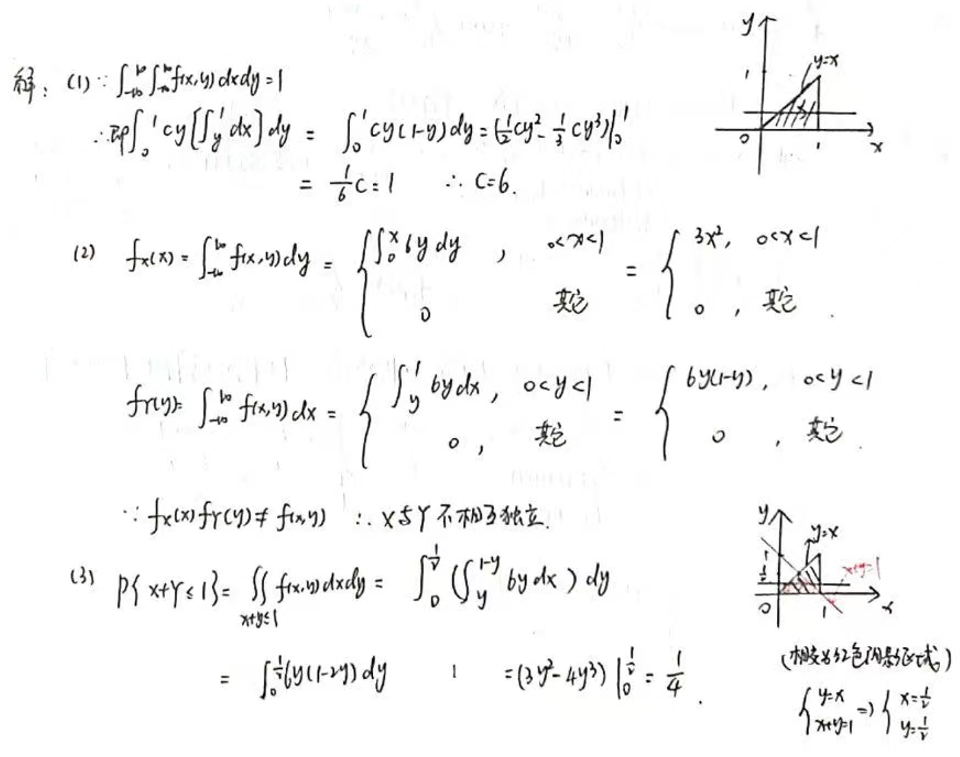 解：(1) ∵ ∫_{-∞}^{+∞}∫_{-∞}^{+∞} f(x,y)dxdy=1
∴ 即∫_0^1 cy[∫_y^1 dx]dy = ∫_0^1 cy(1-y)dy = (1/2 cy² - 1/3 cy³)|_0^1
= 1/6 c = 1 ∴ c=6.
y
1
y=x
0 1 x
(2) f_X(x) = ∫_{-∞}^{+∞} f(x,y)dy = { ∫_0^x 6y dy , 0<x<1 = { 3x², 0<x<1
0 其它 0 , 其它 .
f_Y(y)= ∫_{-∞}^{+∞} f(x,y)dx = { ∫_y^1 6y dx , 0<y<1 = { 6y(1-y), 0<y<1
0 , 其它 0 , 其它 .
∵ f_X(x) f_Y(y) ≠ f(x,y) ∴ X与Y不相互独立.
(3) P{X+Y≤1} = ∬_{x+y≤1} f(x,y)dxdy = ∫_0^{1/2} (∫_y^{1-y} 6y dx) dy
= ∫_0^{1/2} 6y(1-2y)dy = (3y²-4y³)|_0^{1/2} = 1/4 .
y
y=x
1
1/2
x+y=1
0 1 x
(相交为红色阴影区域)
{ y=x ⇒ { x=1/2
x+y=1 y=1/2